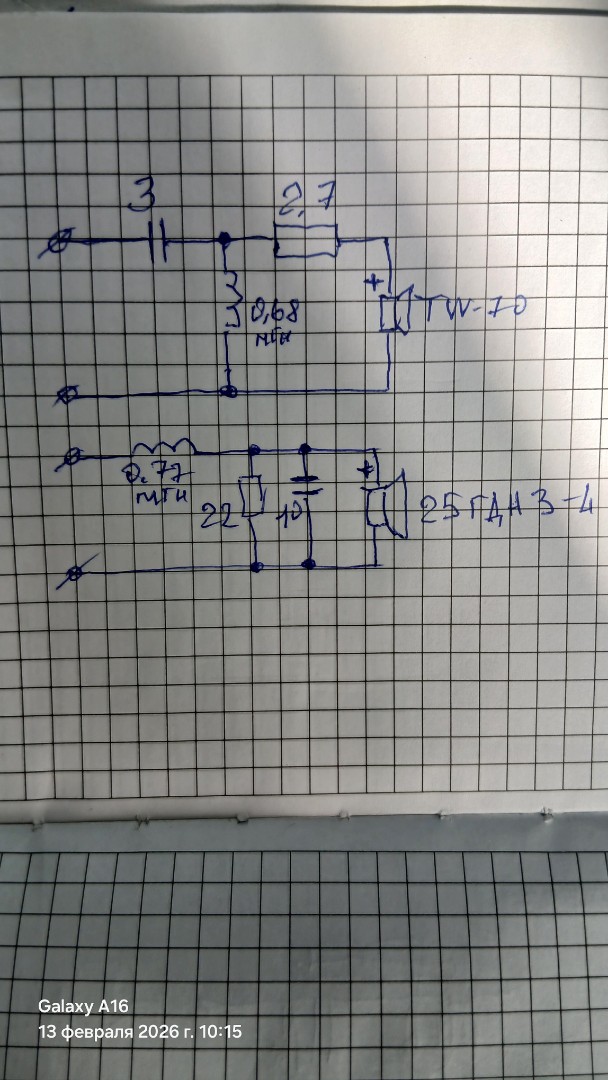 3
2,7
+
TW-70
0,68
мГн
0.77
мГн
22
10
+
25ГДН3-4
Galaxy A16
13 февраля 2026 г. 10:15